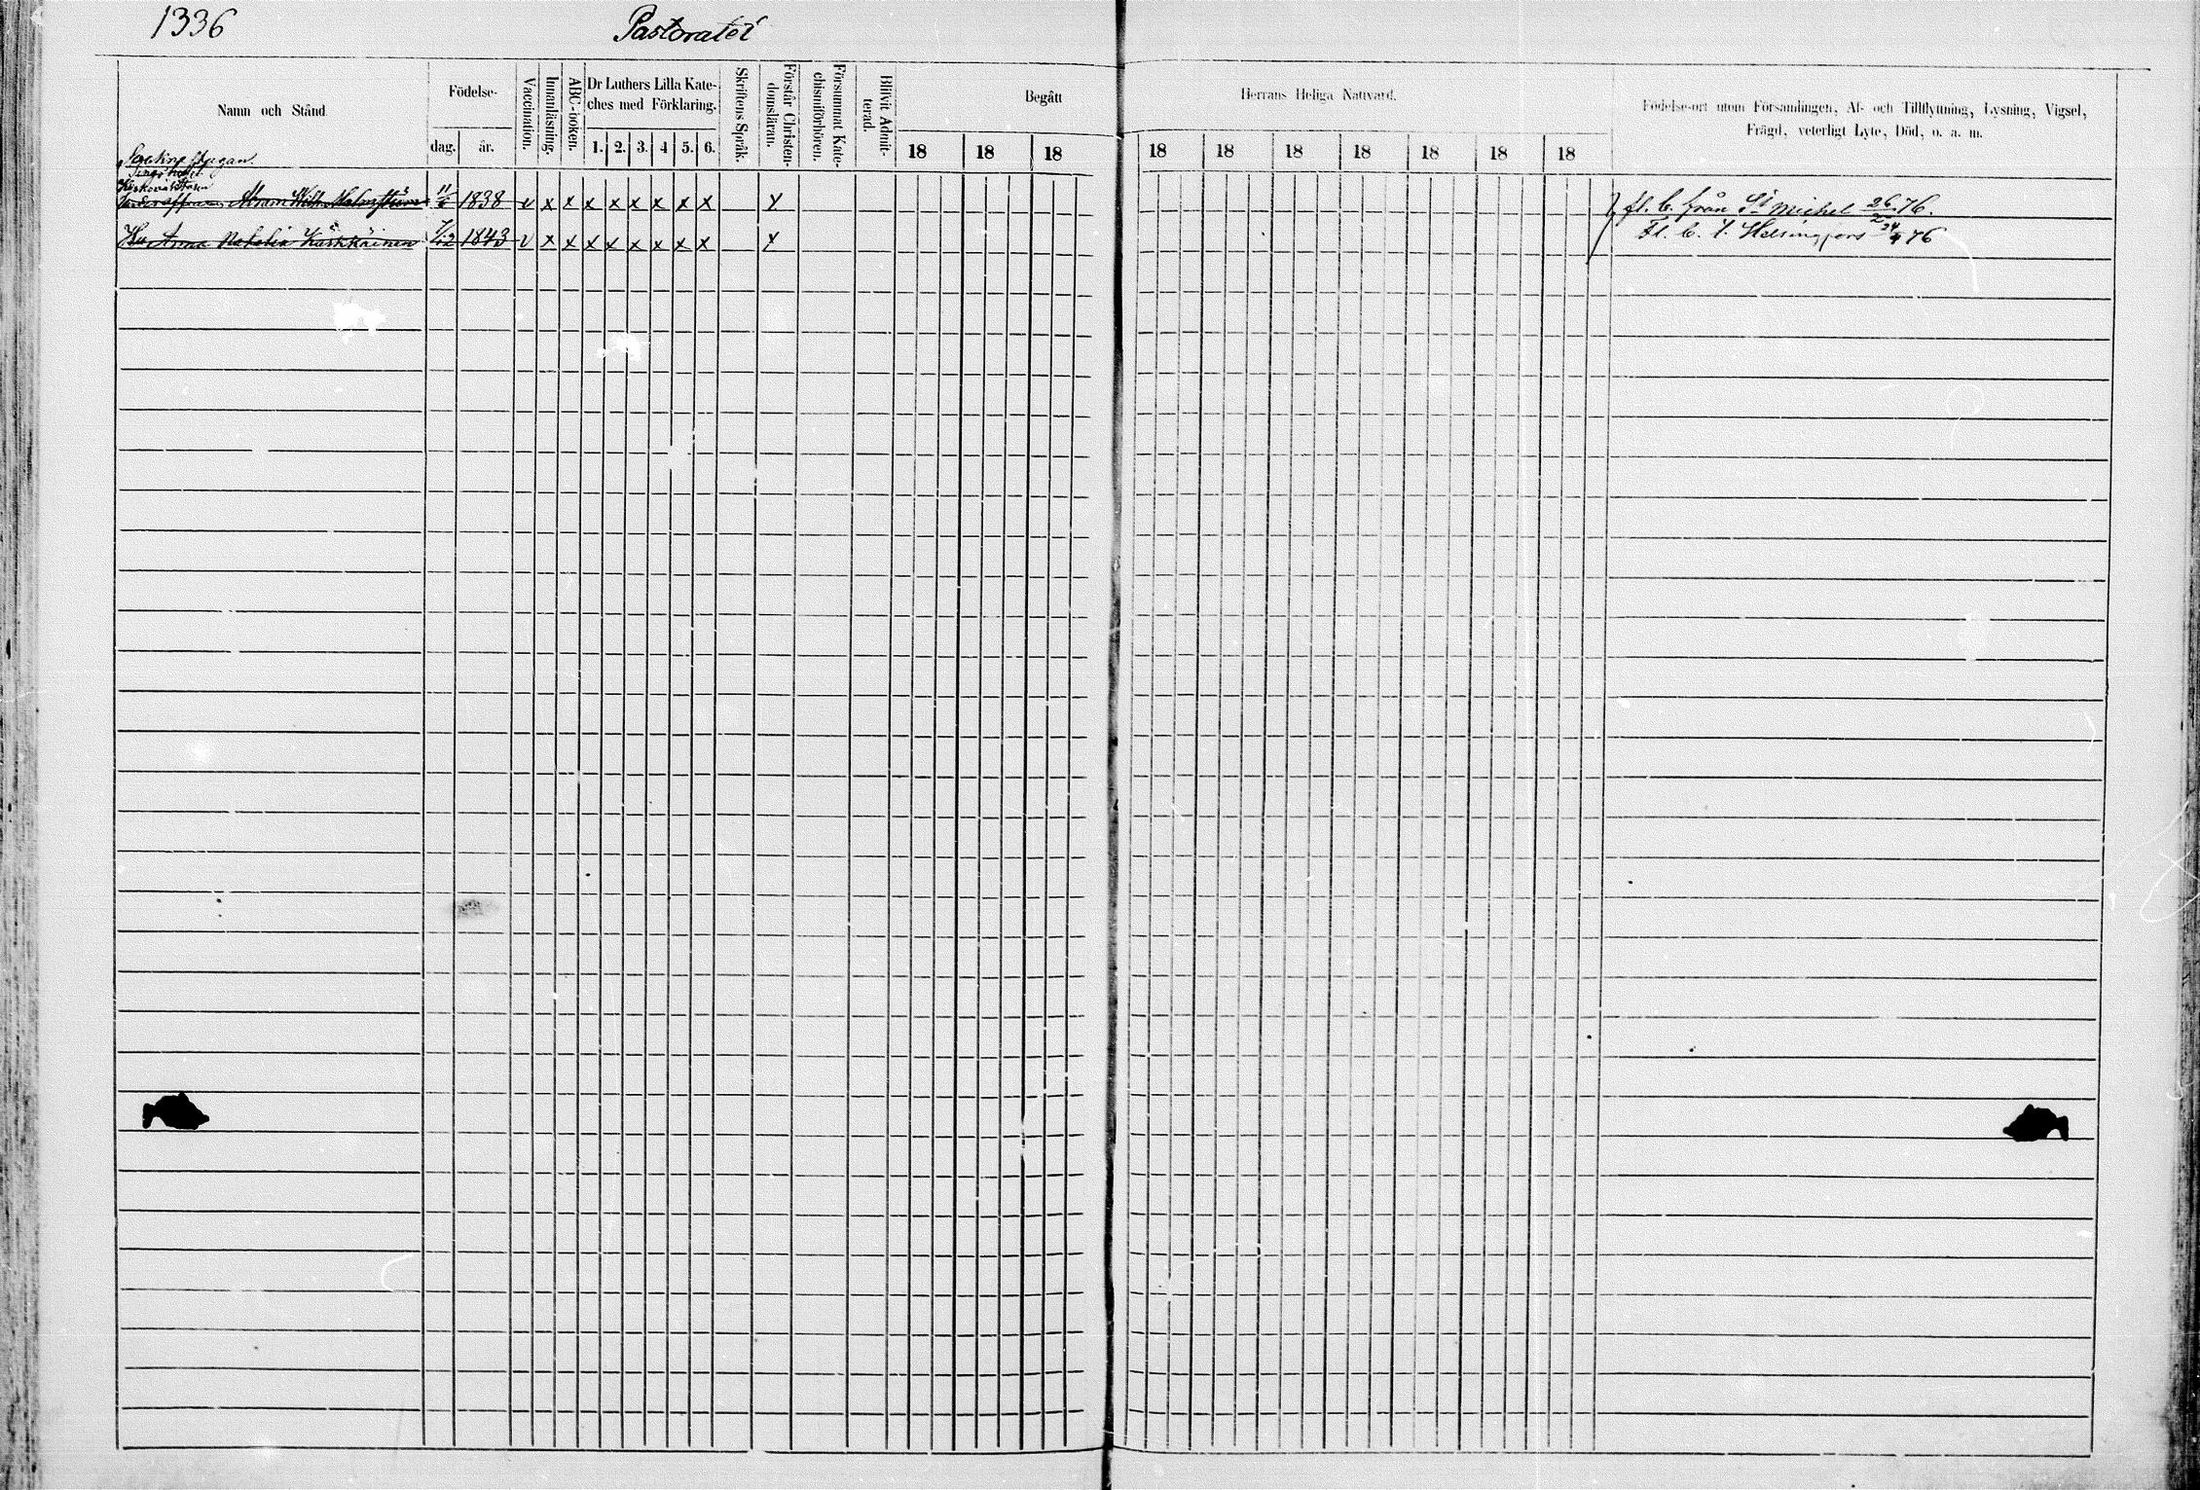 1336
Pastoratet
Namn och Stånd
Födelse-
dag.
år.
Vaccination.
Innanläsning.
ABC-boken.
Dr Luthers Lilla Kate-
ches med Förklaring.
1. 2. 3. 4 5. 6.
Skriftens Språk.
Förstår Christen-
domsläran.
Försummat Kate-
chismiförhören.
Blifvit Admit-
terad.
Begått
18 18 18
Herrans Heliga Nattvard.
18 18 18 18 18 18 18
Födelse-ort utom Församlingen, Af- och Tillflyttning, Lysning, Vigsel,
Frägd, veterligt Lyte, Död, o. a. m.
stugan.
Abram Wilh. Malmström 11/6 1838 v x x x x x x x x x fl. b. från St Michel 26/2 76.
Hu Anna Natalia Kärkkäinen 7/12 1843 v x x x x x x x x x Fl. b. t. Helsingfors 24/4 76